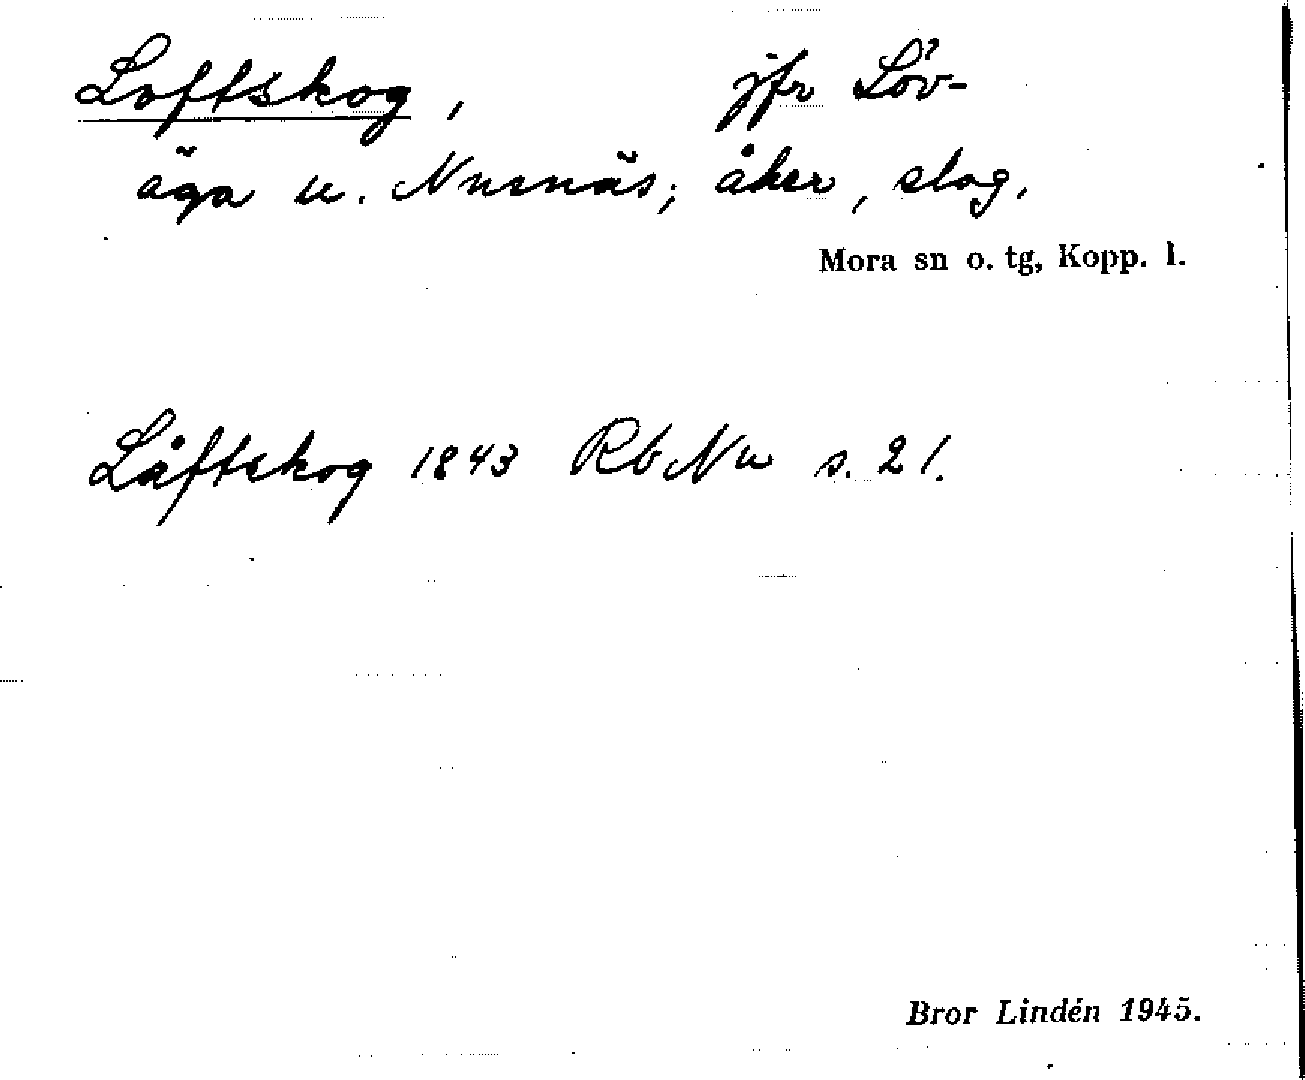 Loftskog, jfr Löv-
äga u. Nusnäs; åker, slog.
Mora sn o. tg, Kopp. l.
Låftskog 1843 RbNu s. 21.
Bror Lindén 1945.